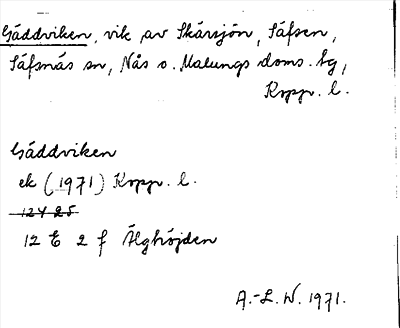 Gäddviken, vik av Skärsjön, Säfsen,
Säfsnäs sn, Nås o. Malungs doms. tg,
Kopp. l.
Gäddviken
ek (1971) Kopp. l.
12 E 2 f Älghöjden
A.-L. W. 1971.